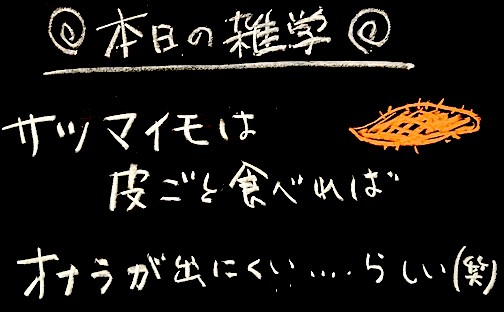 本日の雑学
サツマイモは
皮ごと食べれば
オナラが出にくい....らしい(笑)